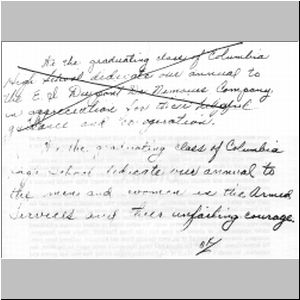 We the graduating class of Columbia
High School dedicate our annual to
the E. I. Dupont De Nemours Company,
in appreciation for their helpful
guidance and cooperation.
We the graduating class of Columbia
High School dedicate our annual to
the men and women in the Armed
Services and their unfailing courage.